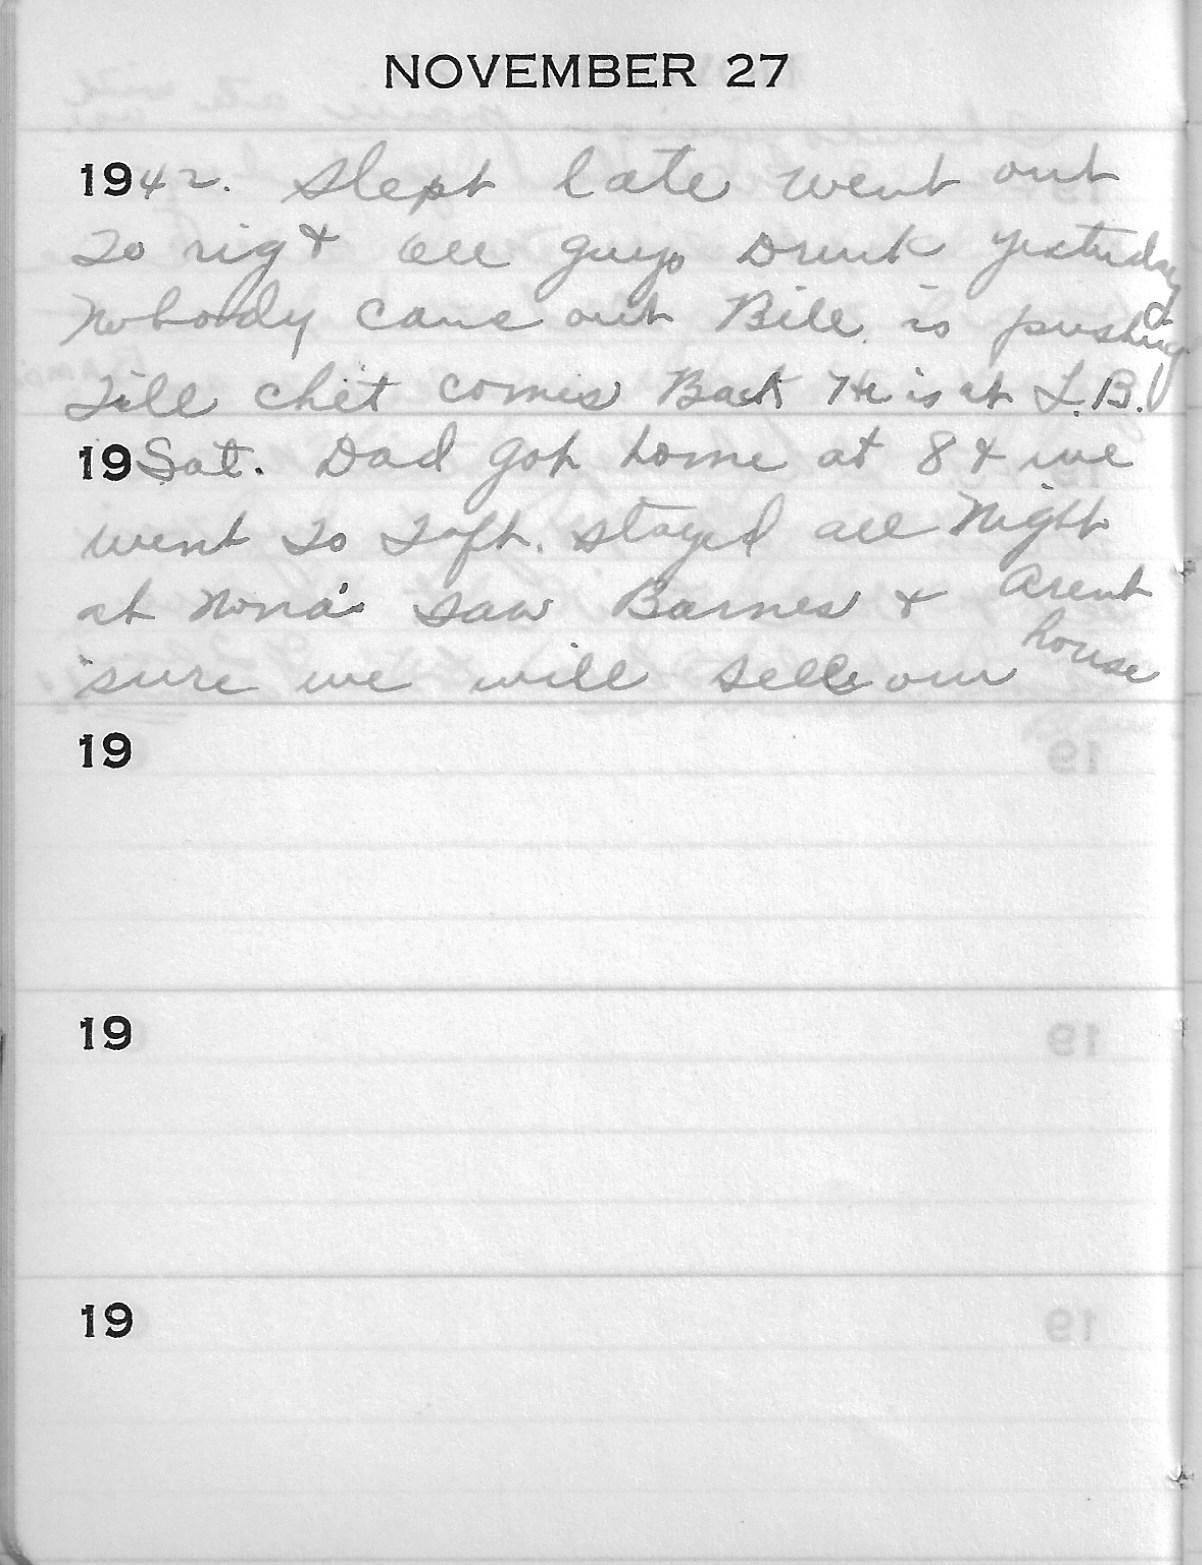 NOVEMBER 27
1942. Slept late went out
to rig & all guys Drunk yesterday &
Nobody came out Bill is pushing
Till chet comes Back He is at L.B.
19 Sat. Dad got home at 8 & we
went to Taft. stayed all Night
at Nona's saw Barnes & Arent
sure we will sell our house
19
19
19